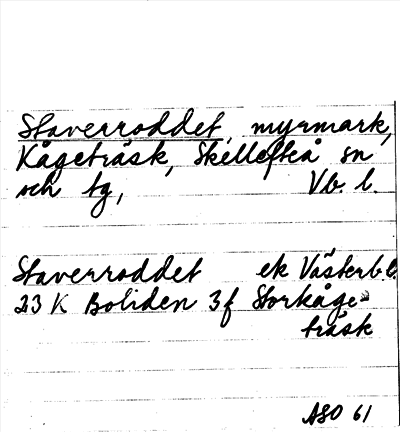 Staverroddet, myrmark,
Kågeträsk, Skellefteå sn
och tg, Vb. l.
Staverroddet ek Västerb.l.
23 K Boliden 3f Storkåge-
träsk
ASO 61